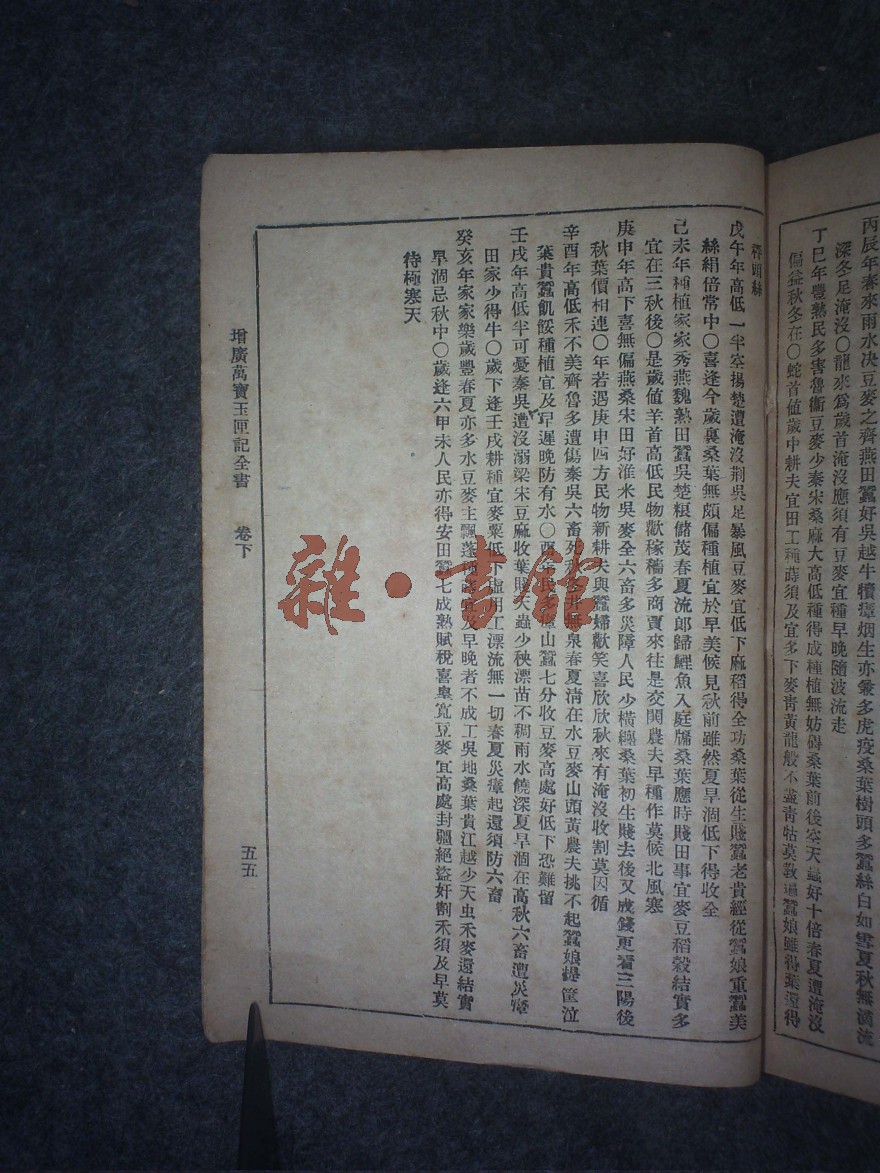 丙辰年春來雨水決豆麥之齊燕田蠶好吳越牛犢瘴烟生亦兼多虎疫桑葉樹頭多蠶絲白如雪夏秋無滴流
深冬足淹沒〇龍來爲歲首淹沒應須有豆麥宜種早晚隨波流走
丁巳年豐熟民多害魯衞豆麥少秦宋桑麻大高低種得成種植無妨碍桑葉前後空天蟲好十倍春夏遭淹沒
偏益秋冬在〇蛇首値歲中耕夫宜田工種蒔須及宜多下麥靑黃龍般不盡靑牯莫敎過蠶娘雖得葉還得
釋頭絲
戊午年高低一半空揚楚遭淹沒荆吳足暴風豆麥宜低下麻稻得全功桑葉從生賤蠶老貴經從蠶娘重蠶美
絲絹倍常中〇喜逢今歲裏桑葉無頗偏種植宜於早美候見秋前雖然夏旱涸低下得收全
己未年種植家家秀燕魏熟田蠶吳楚粮儲茂春夏流郞歸鯉魚入庭牖桑葉應時賤田事宜麥豆稻穀結實多
宜在三秋後〇是歲値羊首高低民物歡稼穡多商賈來往是交関農夫早種作莫候北風塞
庚申年高下喜無偏燕桑宋田好淮米吳麥全六畜多災障人民少橫纒桑葉初生賤去後又成錢更看三陽後
秋葉價相連〇年若遇庚申四方民物新耕夫與蠶婦歡笑喜欣欣秋來有淹沒收割莫因循
辛酉年高低禾不美齊魯多遭傷秦吳六畜死秋冬井無泉春夏淸在水豆麥山頭黃農夫挑不起蠶娘提筐泣
葉貴蠶飢餒種植宜及早遲晚防有水〇酉年民多瘴山蠶七分收豆麥高處好低下恐難留
壬戌年高低半可憂秦吳遭沒溺梁宋豆麻收葉賤天蟲少秧漂苗不稠雨水饒深夏旱涸在高秋六畜遭災瘴
田家少得牛〇歲下逢壬戌耕種宜麥粟低下虛用工漂流無一切春夏災瘴起還須防六畜
癸亥年家家樂歲豐春夏亦多水豆麥主飄蓬種蒔宜及早晚者不成工吳地桑葉貴江越少天虫禾麥還結實
旱涸忌秋中〇歲逢六甲未人民亦得安田蠶七成熟賦稅喜皐寬豆麥宜高處封疆絕盜奸割禾須及早莫
待極寒天
增廣萬寶玉匣記全書
卷下
五五
雜·書舘